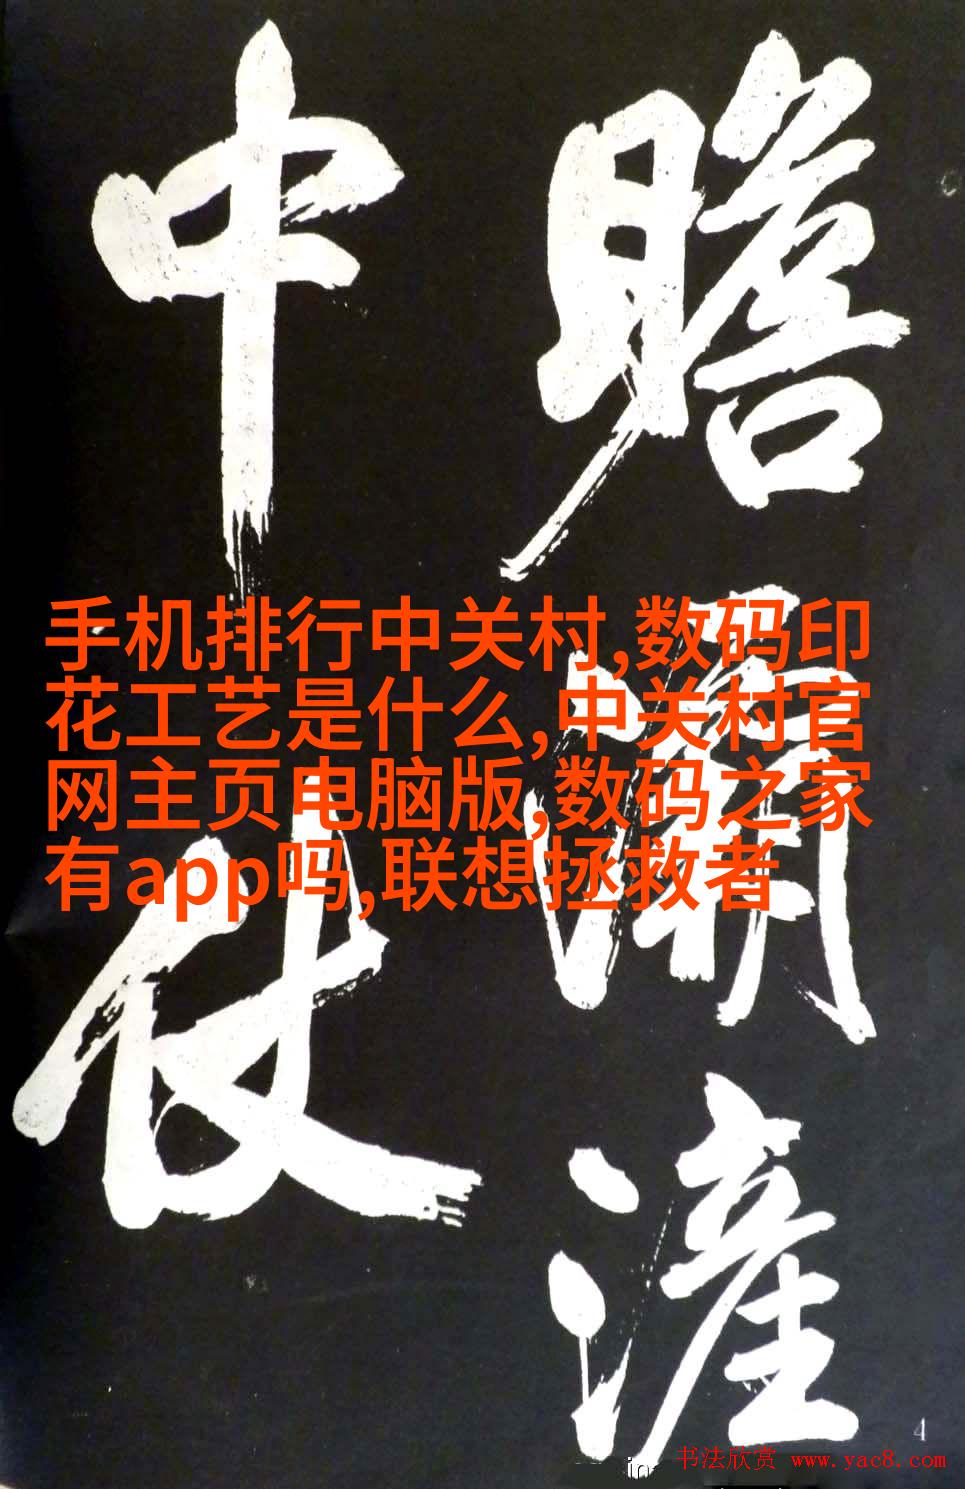 瞻灞浐
中仗
手机排行中关村,数码印
花工艺是什么,中关村官
网主页电脑版,数码之家
有app吗,联想拯救者
4
书法欣赏 www.yac8.com